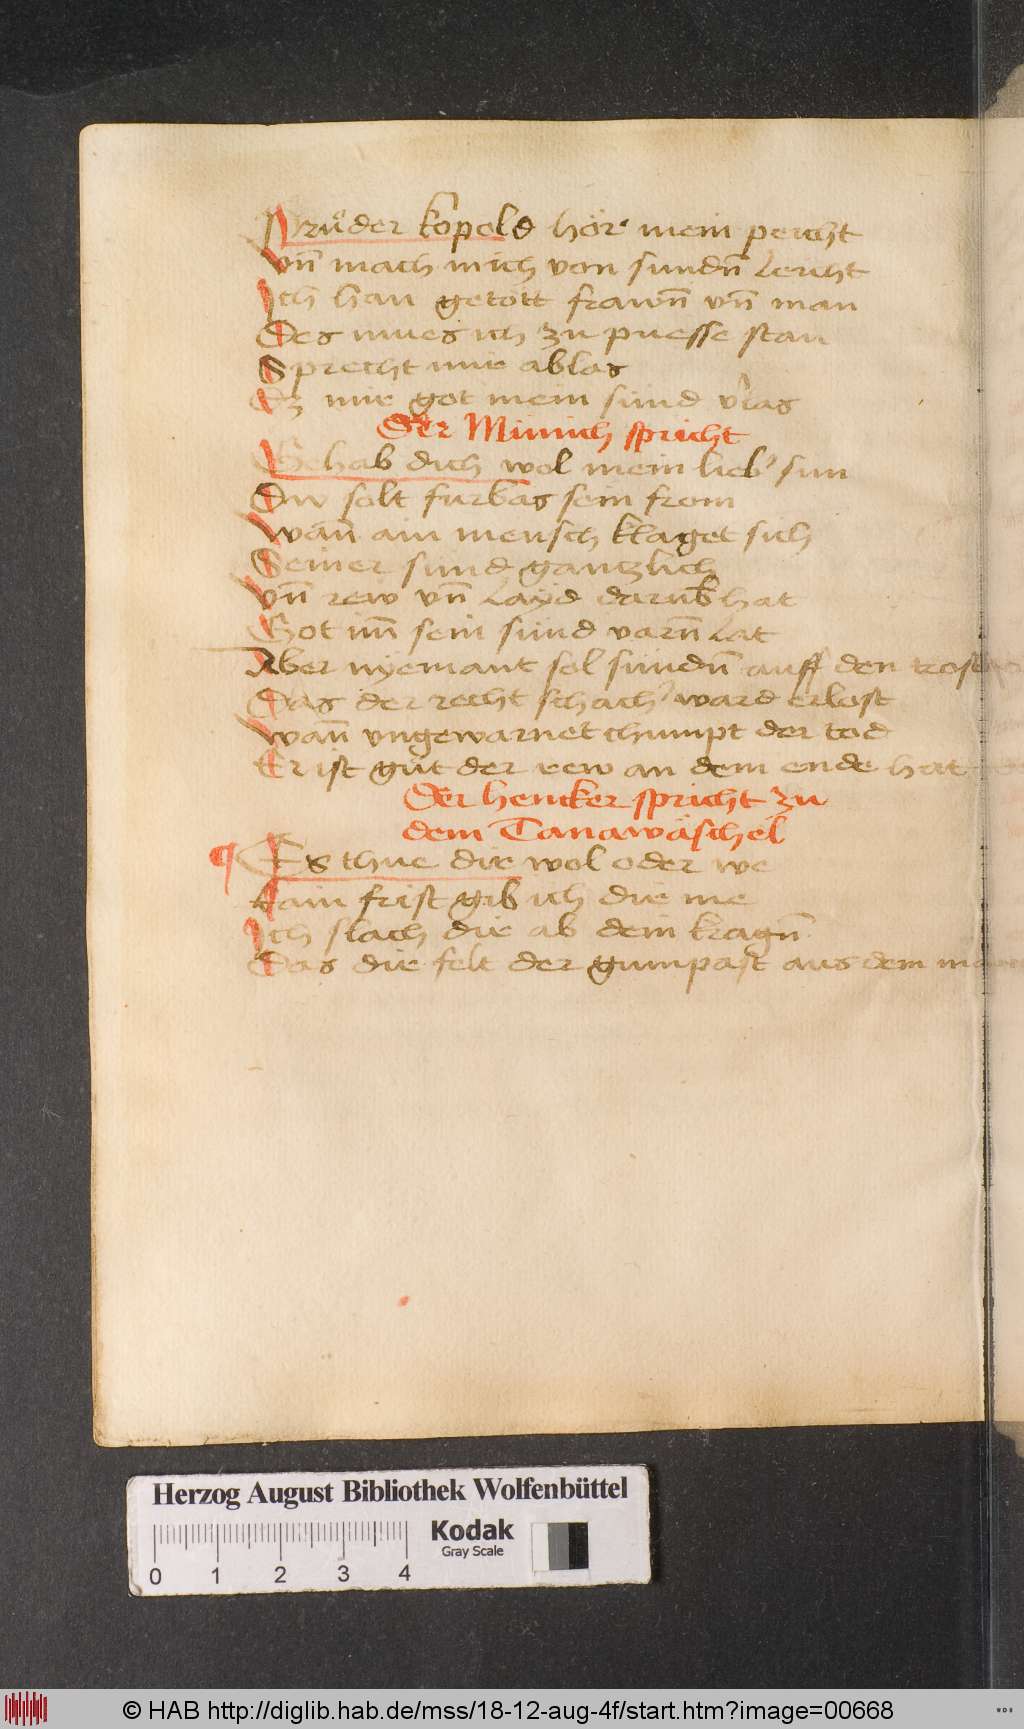 Průder kopold hör mein peicht
vn̄ mach mich von sundn̄ leicht
Ich han getött frawn̄ vn̄ man
Des mues ich zu puesse stan
Sprecht mir ablas
Dz mir got mein sünd v'las
Der Münich spricht
Gehab dich wol mein lieb' sun
Dw solt furbas sein from
Wan̄ ain mensch klaget sich
Seiner sünd gantzlich
Vn̄ rew vn̄ layd darub̄ hat
Got im̄ sein sünd varn̄ lat
Aber nyemant sol sündn̄ auff den trost
Das der recht schach' ward erlost
Wan̄ vngewarnet chumpt der tod
Er ist gůt der rew an dem ende hat
Der hencker spricht zu
dem Tanawäschel
¶ Es thue dir wol oder we
kain frist gib ich dir me
Ich slach dir ab dein kragn̄
Das dir felt der gumpast aus dem
Herzog August Bibliothek Wolfenbüttel
Kodak
Gray Scale
0 1 2 3 4
© HAB http://diglib.hab.de/mss/18-12-aug-4f/start.htm?image=00668